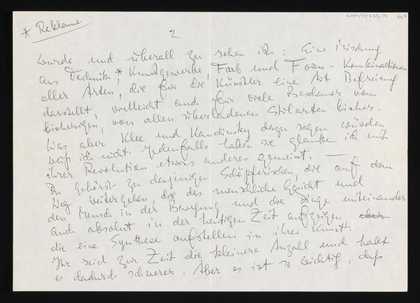 * Reklame
2
wurde und überall zu sehen ist: Eine Mischung
aus Technik,* Kunstgewerbe, Farb und Form-Kombinationen
aller Arten, die für die Künstler eine Art Befreiung
darstellt, vielleicht auch für viele Beschauer von
bisherigen, von allen überladenen Stilarten bisher.
Was aber Klee und Kandinsky dazu sagen würden
weiß ich nicht. Jedenfalls haben sie glaube ich mit
ihrer Revolution etwas anderes gemeint. —
Du gehörst zu denjenigen Schöpferischen, die auf dem
Weg weitergehen, der das menschliche Gesicht und
den Mensch in der Bewegung und die Dinge miteinander
auch absolut in der heutigen Zeit aufzeigen
die eine Synthese aufstellen in ihrer Kunst.
Ihr seid zur Zeit die kleinere Anzahl und habt
es dadurch schwerer. Aber es ist so wichtig, daß